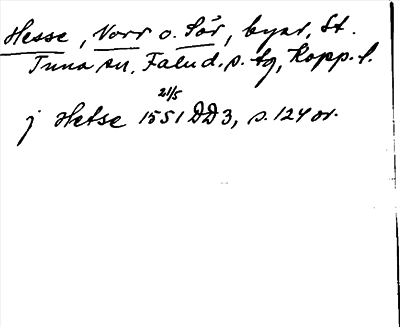 Hesse, Norr o. Sör, byar, St.
Tuna sn, Falu d. s. tg, Kopp. l.
21/5
j Hetse 1551 DD3, s. 124 or.